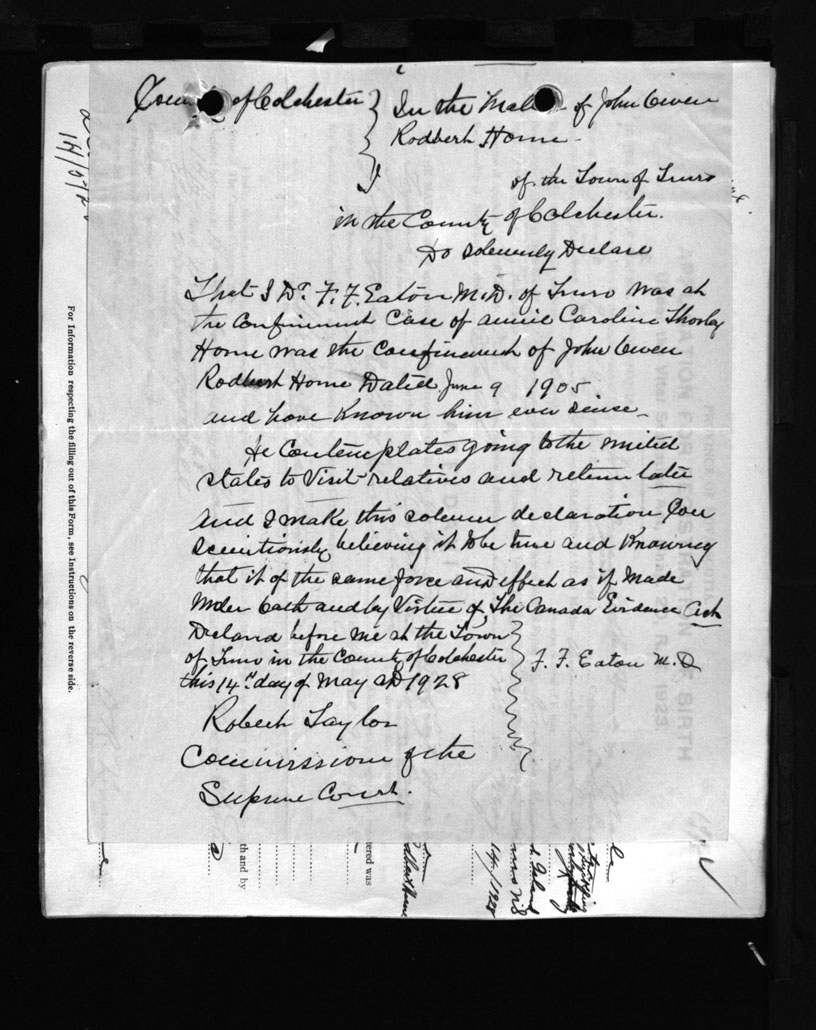 County of Colchester } In the Matter of John Owen
Rodbert Horne -
of the Town of Truro
in the County of Colchester.
Do Solemnly Declare
That I Dr. F. F. Eaton M.D. of Truro was at
the Confinement Case of Annie Caroline Thorley
Horne was the Confinement of John Owen
Rodbert Horne Dated June 9 1905
and have Known him ever since -
He Contemplates going to the united
states to Visit relatives and return later
And I make this solemn declaration Con
scientiously believing it to be true and Knowing
that it of the same force and effect as if Made
Under Oath and by Virtue of The Canada Evidence Act
Declared before me at the Town
of Truro in the County of Colchester
this 14th day of May AD 1928
} F. F. Eaton M.D
Robert Taylor
Commissioner of the
Supreme Court.
For Information respecting the filling out of this Form, see Instructions on the reverse side.
th and by
ered was
14/1928